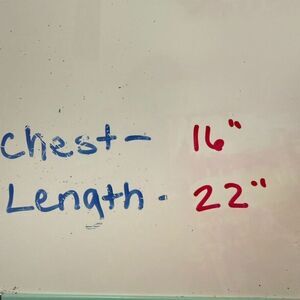 Chest- 16"
Length- 22"